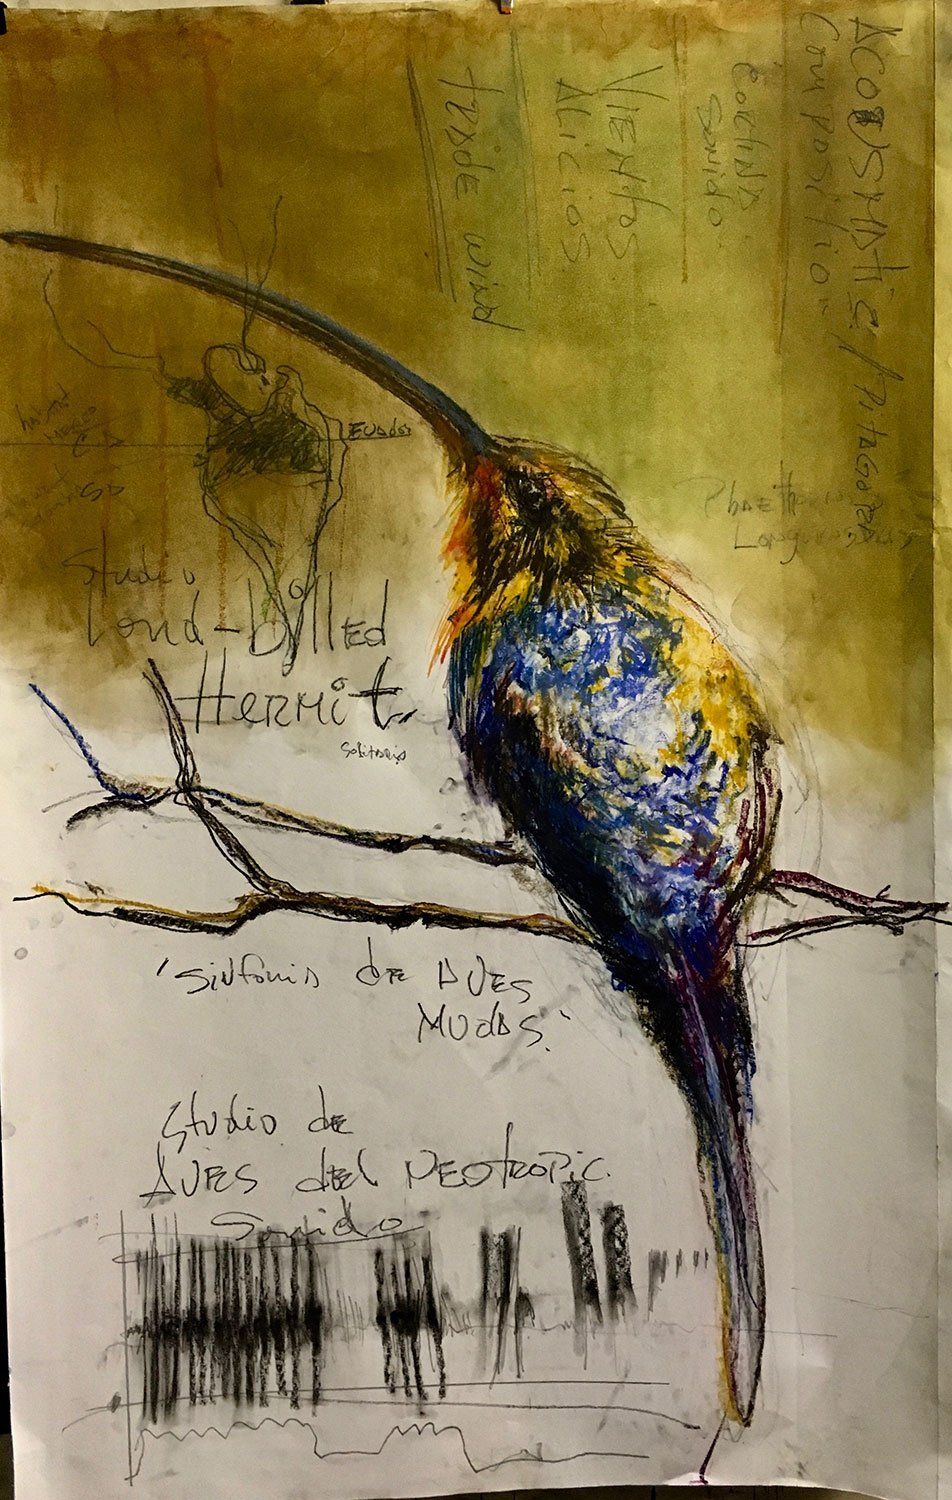 ACOUSMATIC / PITAGORAS
COMPOSITIO"
CORTINA
SONIDO
VIENTOS
ALICIOS
TRADE WIND
ECUADOR
Phaeth
Longirostris
Studio
Lond-billed
Hermit
Solitario
'Sinfonia de Aves
Mudas'
Studio de
Aves del Neotropic
Sonido